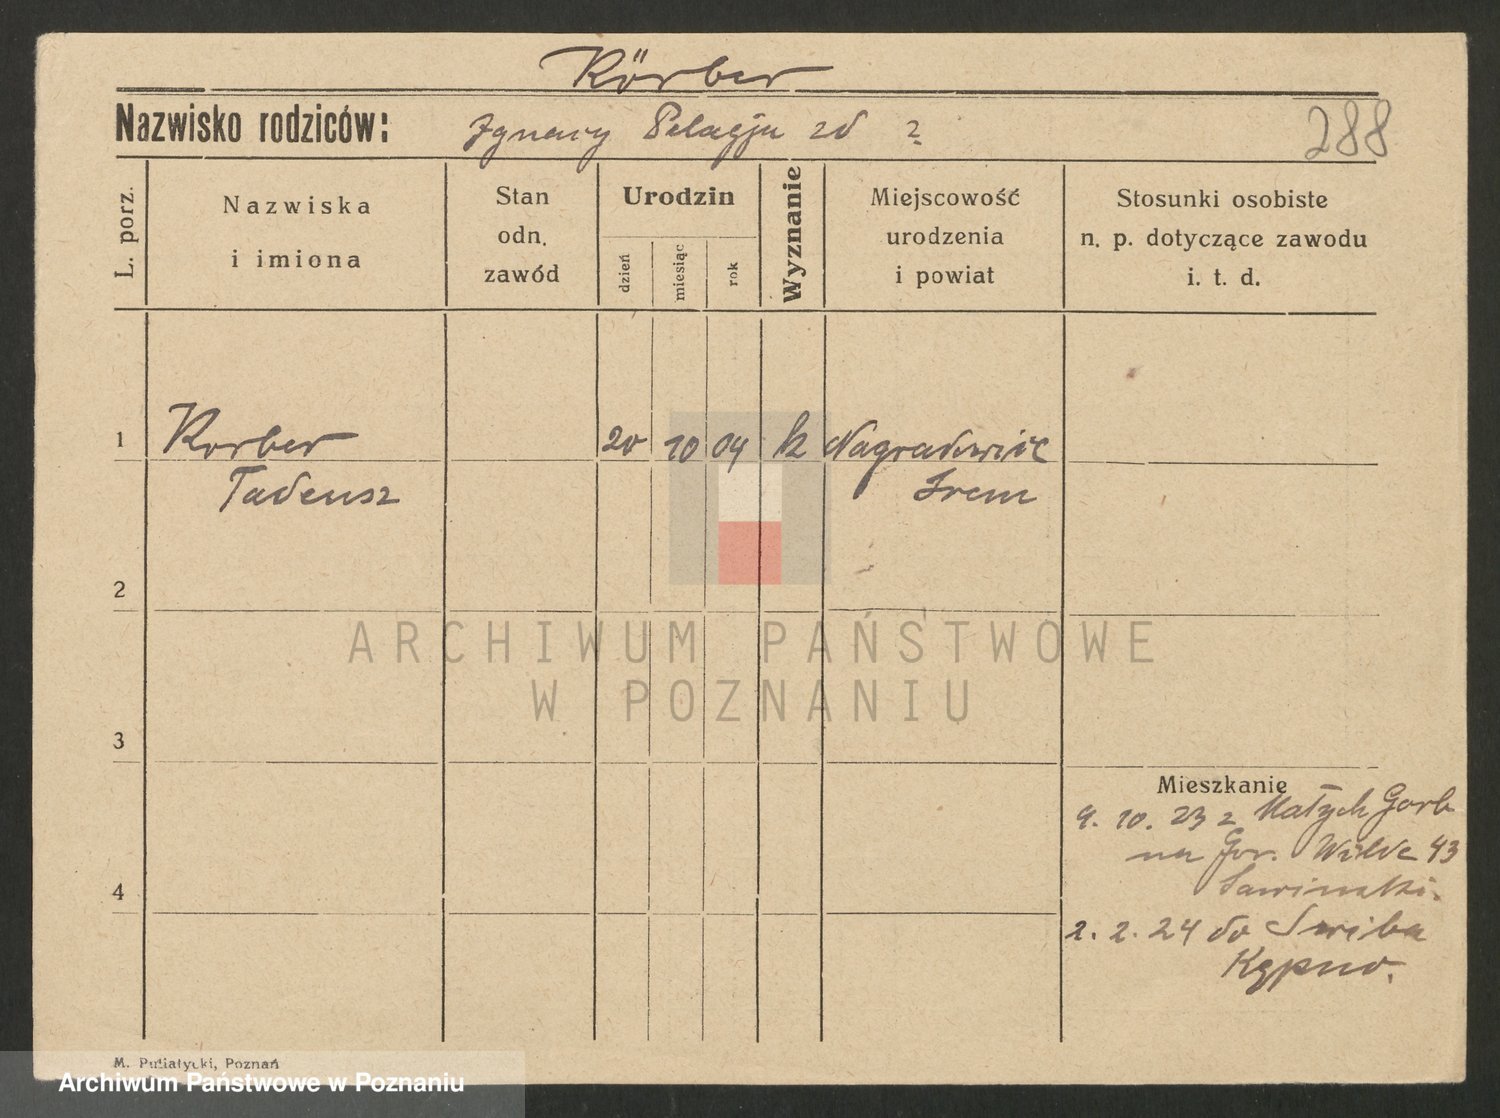 Körber
Nazwisko rodziców: Ignacy Pelagja zd ?
288
L. porz.
Nazwiska
i imiona
Stan
odn.
zawód
Urodzin
dzień
miesiąc
rok
Wyznanie
Miejscowość
urodzenia
i powiat
Stosunki osobiste
n. p. dotyczące zawodu
i. t. d.
1 Korber 20 10 04 k Nagradowice
Tadeusz Śrem
2
ARCHIWUM PAŃSTWOWE
W POZNANIU
3
Mieszkanie
9. 10. 23 z Małych Garb
na Gór. Wilde 43
4
2. 2. 24 do Świba
Kępno.
M. Putiatycki, Poznań
Archiwum Państwowe w Poznaniu